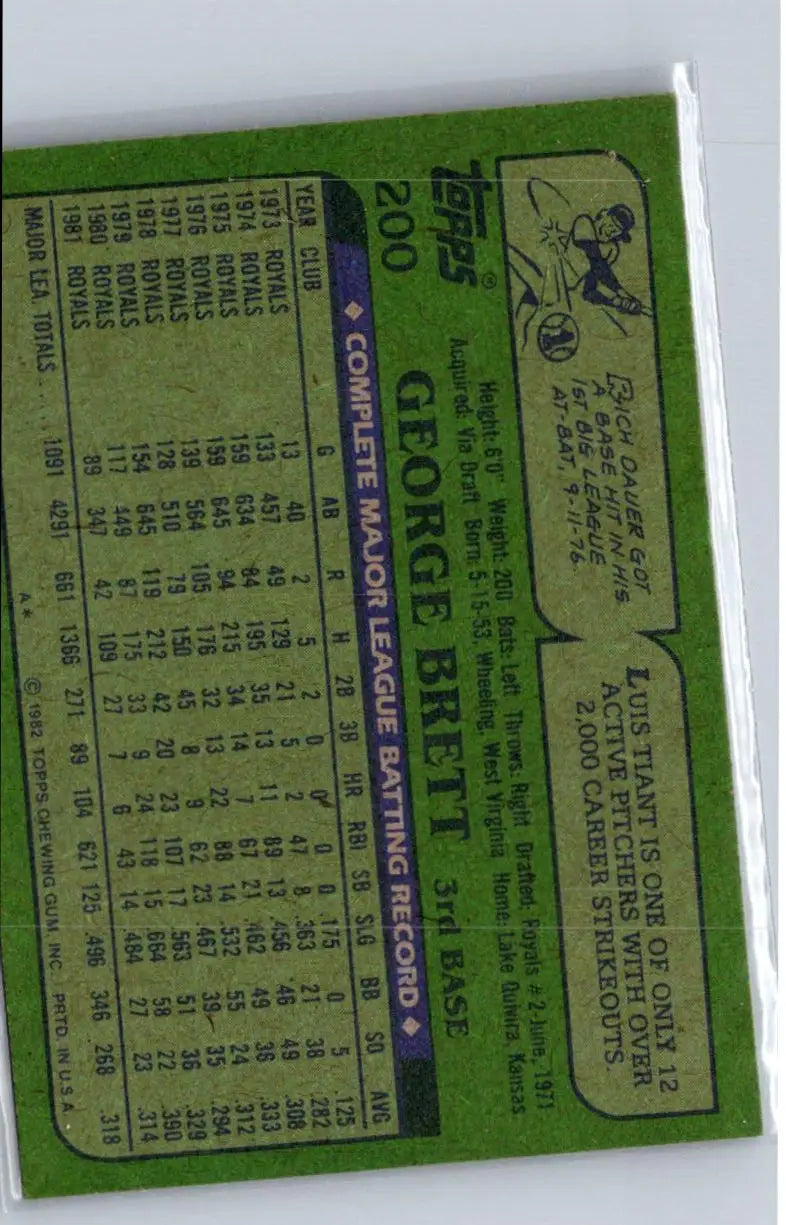 RICH DAUER GOT
A BASE HIT IN HIS
1ST BIG LEAGUE
AT-BAT, 9-11-76.
LUIS TIANT IS ONE OF ONLY 12
ACTIVE PITCHERS WITH OVER
2,000 CAREER STRIKEOUTS.
TOPPS®
200
Height: 6'0" Weight: 200 Bats: Left Throws: Right Drafted: Royals # 2-June, 1971
Acquired: Via Draft Born: 5-15-53, Wheeling, West Virginia Home: Lake Quivira, Kansas
GEORGE BRETT 3rd BASE
◆ COMPLETE MAJOR LEAGUE BATTING RECORD ◆
YEAR CLUB G AB R H 2B 3B HR RBI SB SLG BB SO AVG
1973 ROYALS 13 40 2 5 2 0 0 0 0 .175 0 5 .125
1974 ROYALS 133 457 49 129 21 5 2 47 8 .363 21 38 .282
1975 ROYALS 159 634 84 195 35 13 11 89 13 .456 46 49 .308
1976 ROYALS 159 645 94 215 34 14 7 67 21 .462 49 36 .333
1977 ROYALS 139 564 105 176 32 13 22 88 14 .532 55 24 .312
1978 ROYALS 128 510 79 150 45 8 9 62 23 .467 39 35 .294
1979 ROYALS 154 645 119 212 42 20 23 107 17 .563 51 36 .329
1980 ROYALS 117 449 87 175 33 9 24 118 15 .664 58 22 .390
1981 ROYALS 89 347 42 109 27 7 6 43 14 .484 27 23 .314
MAJOR LEA. TOTALS .... 1091 4291 661 1366 271 89 104 621 125 .496 346 268 .318
A* © 1982 TOPPS CHEWING GUM, INC. PRTD. IN U.S.A.